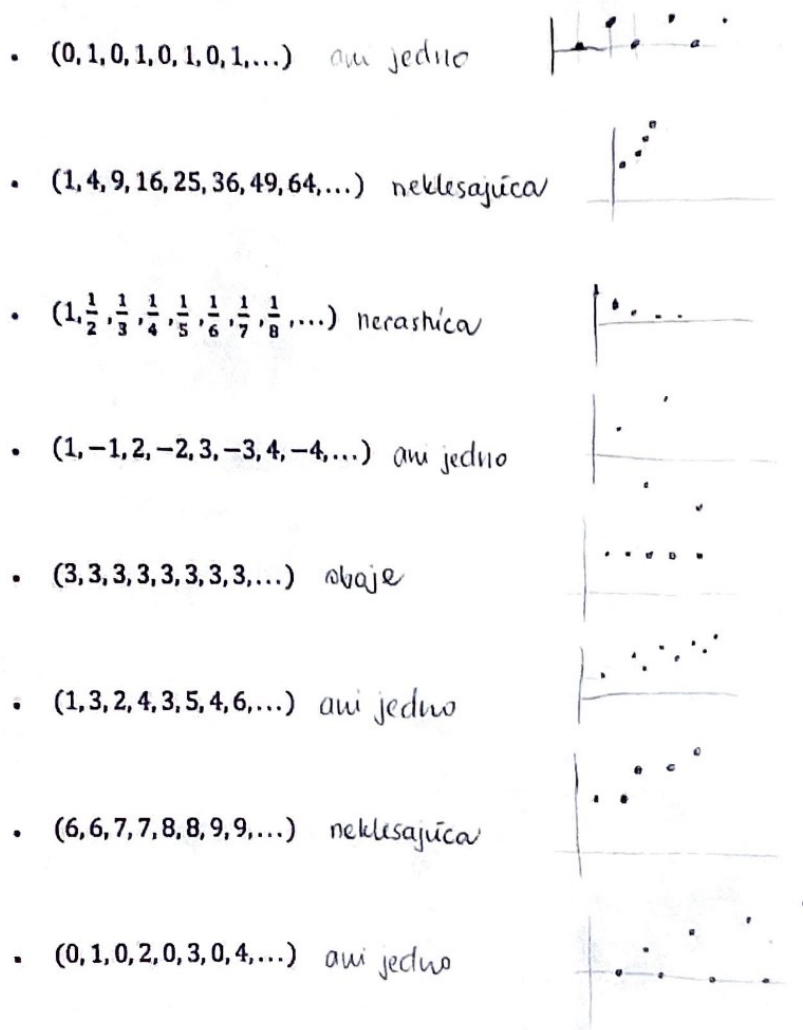 • (0, 1, 0, 1, 0, 1, 0, 1,…) ani jedno
• (1, 4, 9, 16, 25, 36, 49, 64,…) neklesajúca
• (1, 1/2, 1/3, 1/4, 1/5, 1/6, 1/7, 1/8,…) nerastúca
• (1, −1, 2, −2, 3, −3, 4, −4,…) ani jedno
• (3, 3, 3, 3, 3, 3, 3, 3,…) oboje
• (1, 3, 2, 4, 3, 5, 4, 6,…) ani jedno
• (6, 6, 7, 7, 8, 8, 9, 9,…) neklesajúca
• (0, 1, 0, 2, 0, 3, 0, 4,…) ani jedno